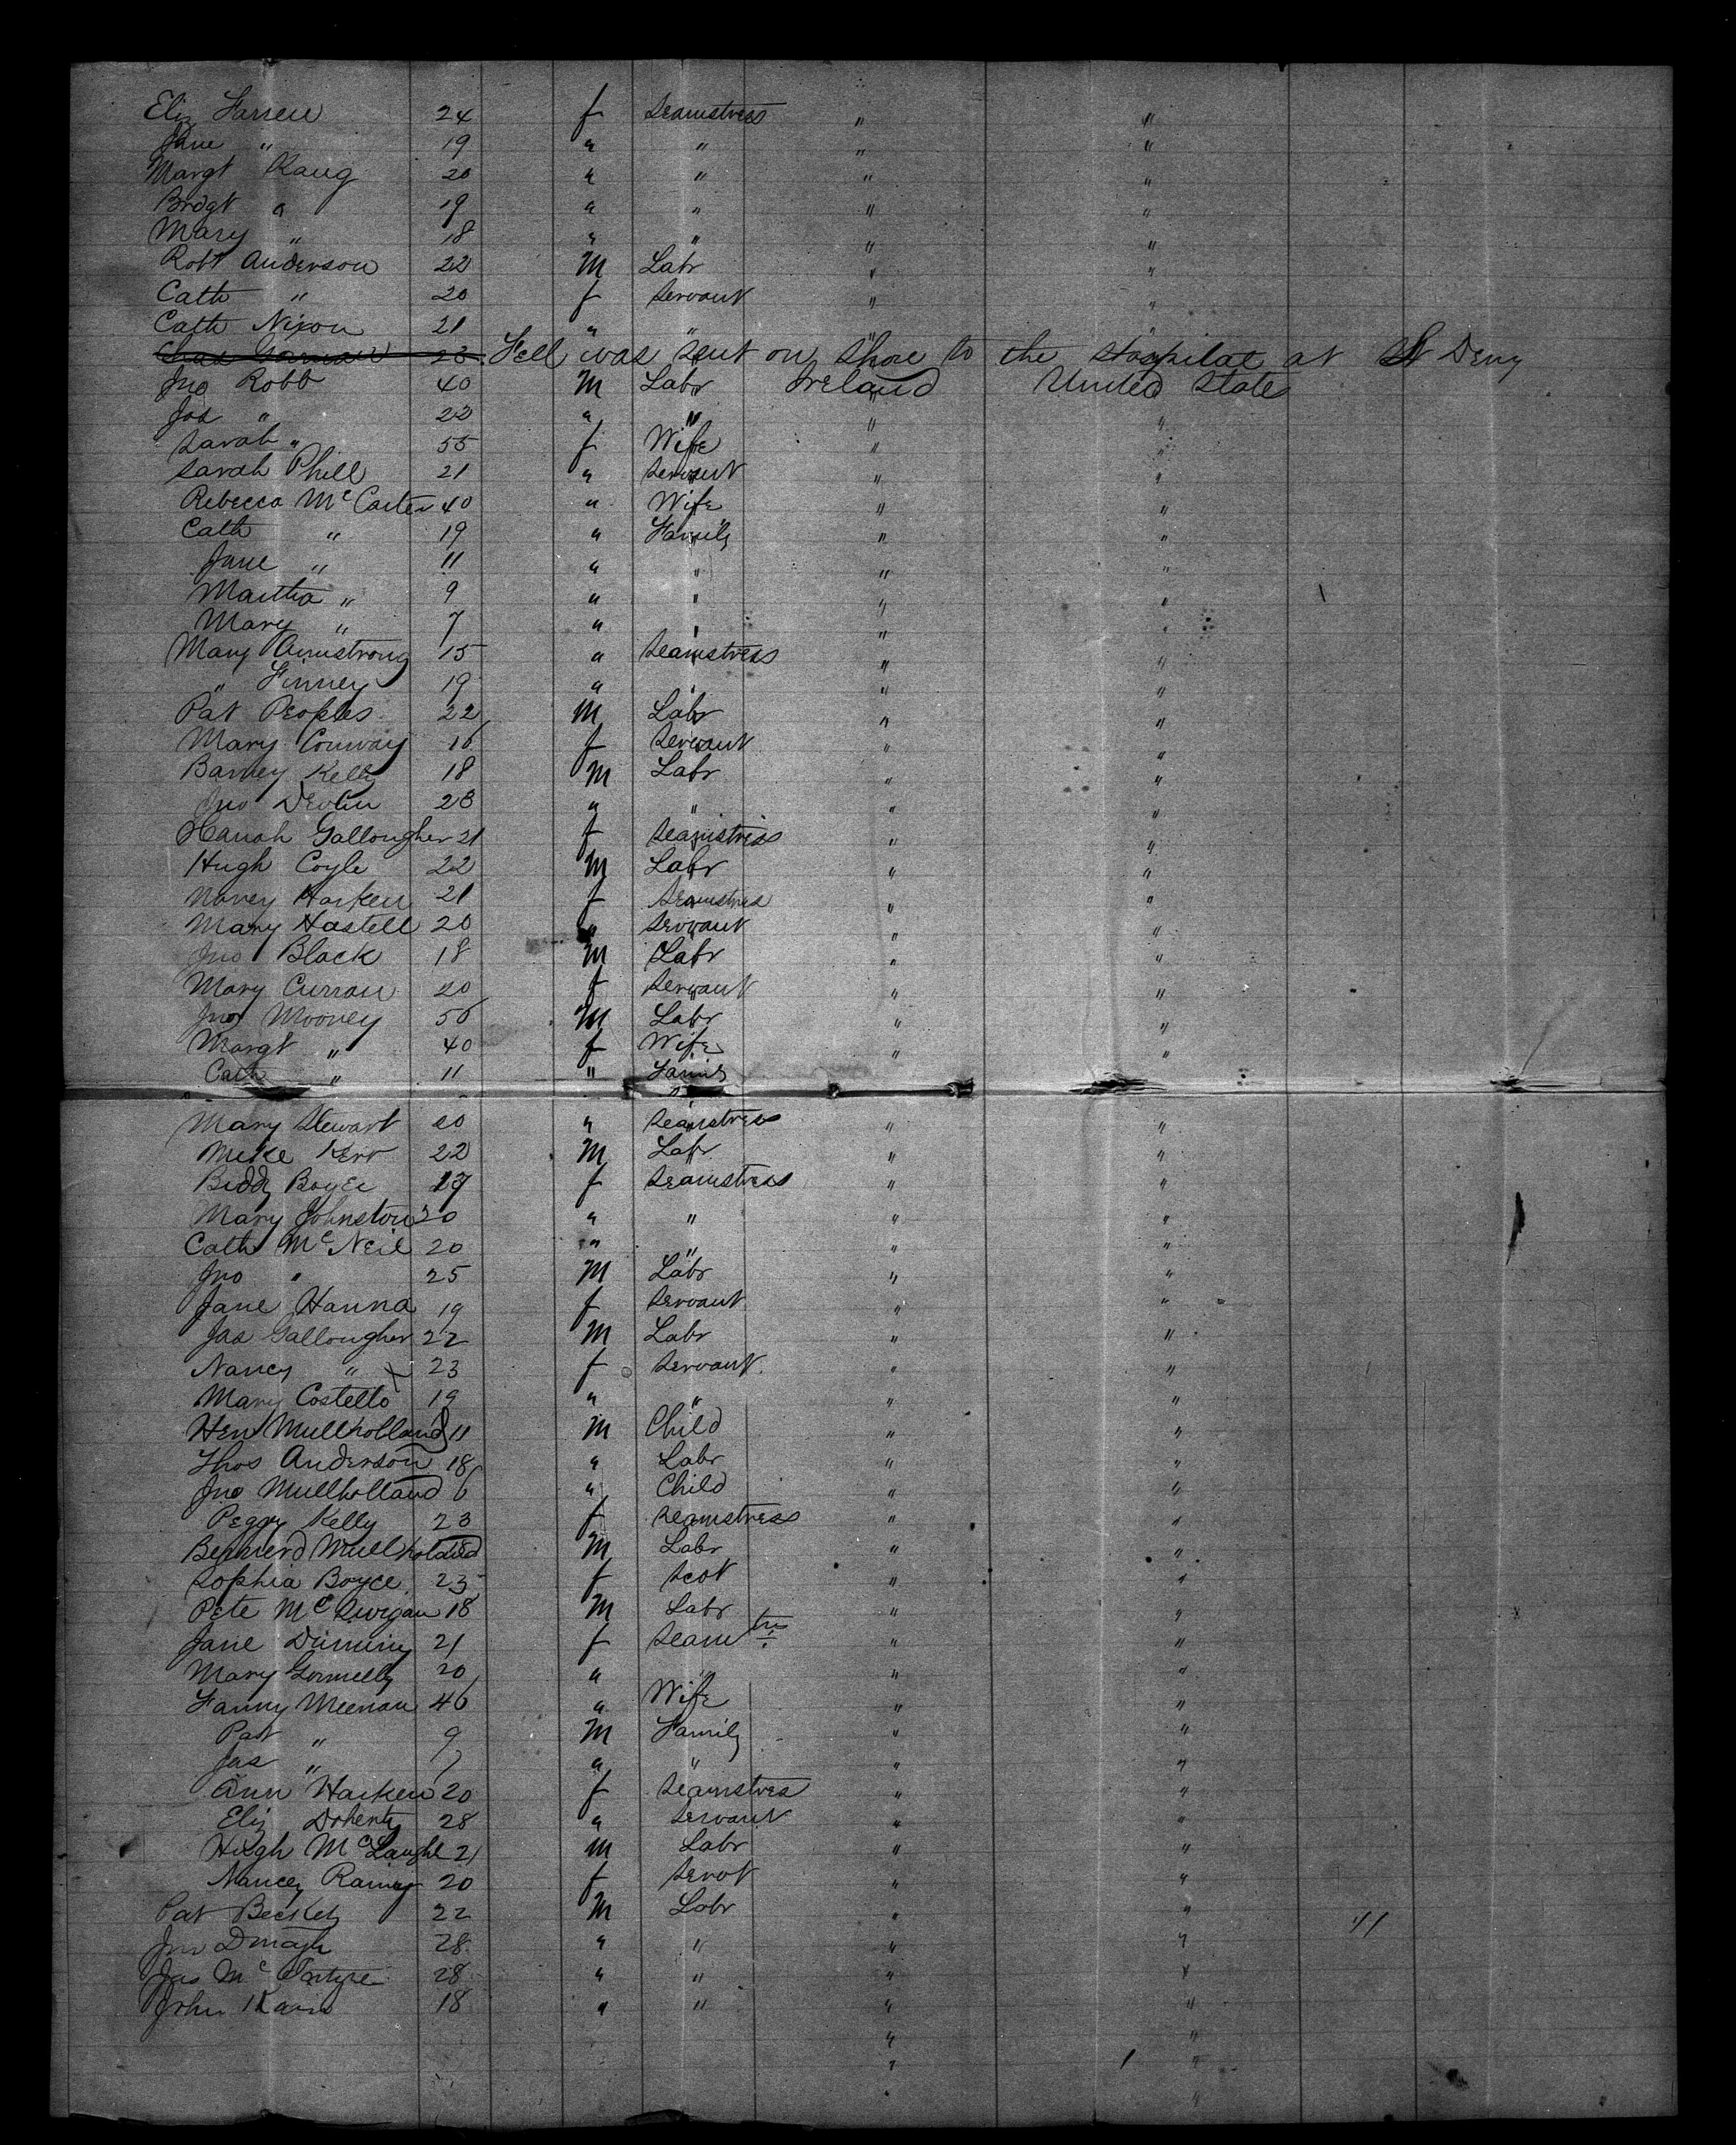 Eliz Farren 24 f Seamstress " "
Jane " 19 " " " "
Margt Kaug 20 " " " "
Brdgt " 19 " " " "
Mary " 18 " " " "
Robt Anderson 22 M Labr " "
Cath " 20 f Servant " "
Cath Nixon 21 " " " "
Chas Gorman 23 Fell was sent on shore to the Hospital at Derry
Jno Robb 40 M Labr Ireland United States
Jas " 22 " " " "
Sarah " 55 f Wife " "
Sarah Phill 21 " Servant " "
Rebecca McCarter 40 " Wife " "
Cath " 19 " Family " "
Jane " 11 " " " "
Martha " 9 " " " "
Mary " 7 " " " "
Mary Armstrong 15 " Seamstress " "
" Finney 19 " " " "
Pat Peoples 22 M Labr " "
Mary Conway 16 f Servant " "
Barney Kelly 18 M Labr " "
Jno Devlin 23 " " " "
Hanah Gallougher 21 f Seamstress " "
Hugh Coyle 22 M Labr " "
Nancy Harken 21 f Seamstres " "
Mary Hastell 20 " Servant " "
Jno Black 18 M Labr " "
Mary Curran 20 f Servant " "
Jno Mooney 56 M Labr " "
Margt " 40 f Wife " "
Cath " 11 " Family
Mary Stewart 20 " Seamstress " "
Mike Kerr 22 M Labr " "
Biddy Boyce 17 f Seamstress " "
Mary Johnston 20 " " " "
Cath McNeil 20 " " " "
Jno " 25 M Labr " "
Jane Hanna 19 f Servant " "
Jas Gallougher 22 M Labr " "
Nancy " 23 f Servant " "
Mary Costello 19 " " " "
Hen Mullholland 11 M Child " "
Thos Anderson 18 " Labr " "
Jno Mullholland 6 " Child " "
Peggy Kelly 23 f Seamstress " "
Bernerd Mullholland M Labr " "
Sophia Boyce 23 f Scot " "
Pete McGuigan 18 M Labr " "
Jane Dimmin 21 f Seamtrs " "
Mary Gormelly 20 " " " "
Fanny Meenan 46 " Wife " "
Pat " 9 M Family " "
Jas " 7 " " " "
Ann Harken 20 f Seamstres " "
Eliz Doherty 28 " Servant " "
Hugh McLaughl 21 M Labr " "
Nancy Rainey 20 f Servt " "
Pat Becket 22 M Labr " " 11
Jno 28 " " " "
Jas McIntyre 28 " " " "
John 18 " " " "
" "
" "
" "